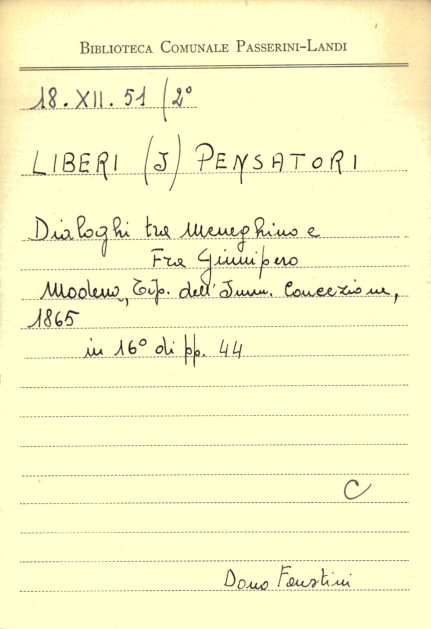 BIBLIOTECA COMUNALE PASSERINI-LANDI
18.XII.51 (2°
LIBERI (I) PENSATORI
Dialoghi tra Meneghino e
Fra Ginnipero
Modena, Tip. dell'Imm. Concezione,
1865
in 16° di pp. 44
C
Dono Faustini